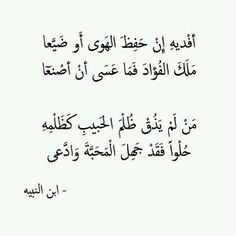 أفْديهِ إنْ حَفِظَ الهَوى أَو ضَيَّعا
مَلَكَ الْفُؤَادَ فَمَا عَسَى أنْ أصْنعَا
مَنْ لَمْ يَذُقْ ظُلْمَ الحَبيبِ كَظَلْمِهِ
حُلْواً فَقَدْ جَهِلَ الْمَحَبَّةَ وَادَّعى
- ابن النبيه